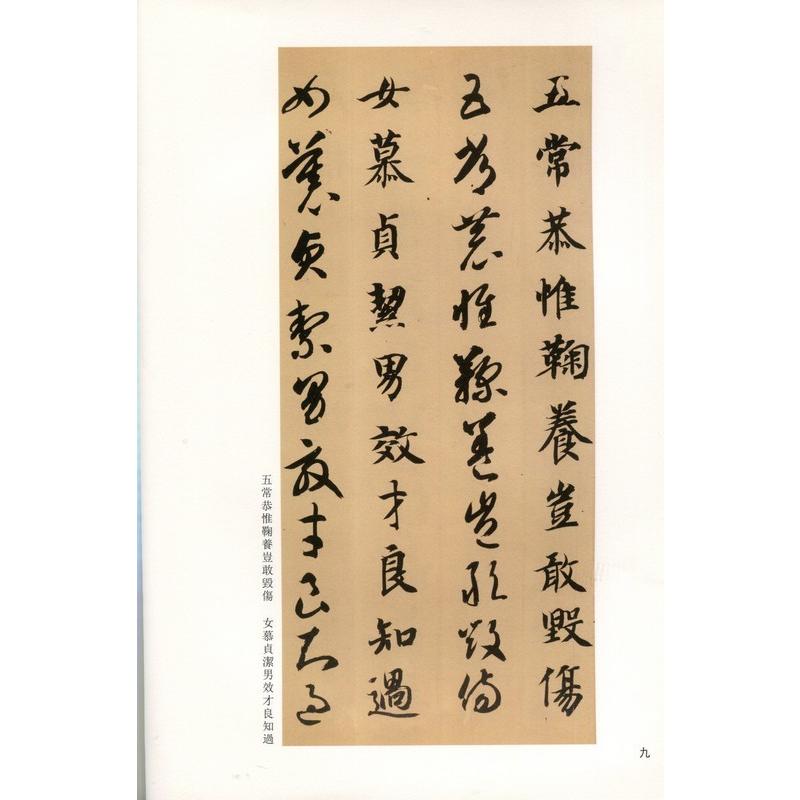 五常恭惟鞠養豈敢毀傷
五常恭惟鞠養豈敢毀傷
女慕貞絜男效才良知過
女慕貞絜男效才良知過
五常恭惟鞠養豈敢毀傷　女慕貞潔男效才良知過
九